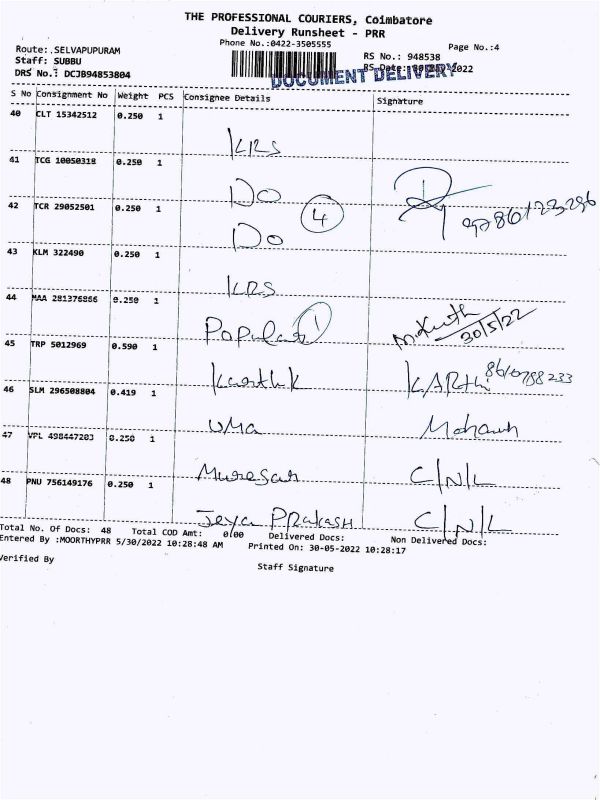 THE PROFESSIONAL COURIERS, Coimbatore
Delivery Runsheet - PRR
Phone No.:0422-3505555
Page No.:4
Route:.SELVAPUPURAM
RS No.: 948538
Staff: SUBBU
RS Date: 2022
DRS No.: DCJB94853804
DOCUMENT DELIVERY
S No Consignment No Weight PCS Consignee Details Signature
40 CLT 15342512 0.250 1
KRS
41 TCG 10050318 0.250 1
Do
42 TCR 29052501 0.250 1
4
9786123296
Do
43 KLM 322490 0.250 1
KRS
44 MAA 281376866 0.250 1
Popular 1
30/5/22
45 TRP 5012969 0.590 1
Karthik KARthi
46 SLM 296508804 0.419 1
UMA
47 VPL 498447203 0.250 1
Muregan C/N/L
48 PNU 756149176 0.250 1
Jeya PRakash C/N/L
Total No. Of Docs: 48 Total COD Amt: 0/00 Delivered Docs: Non Delivered Docs:
Entered By :MOORTHYPRR 5/30/2022 10:28:48 AM Printed On: 30-05-2022 10:28:17
Verified By
Staff Signature